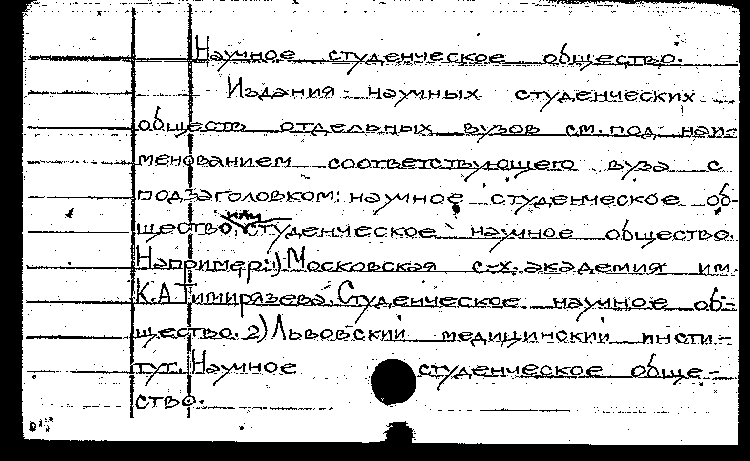 Научное студенческое общество.
Издания научных студенческих
обществ отдельных вузов см. под наи-
менованием соответствующего вуза с
подзаголовком: научное студенческое об-
или
щество, студенческое научное общество.
Например: 1) Московская с-х. академия им.
К.А Тимирязева. Студенческое научное об-
щество. 2) Львовский медицинский инсти-
тут. Научное студенческое обще-
ство.